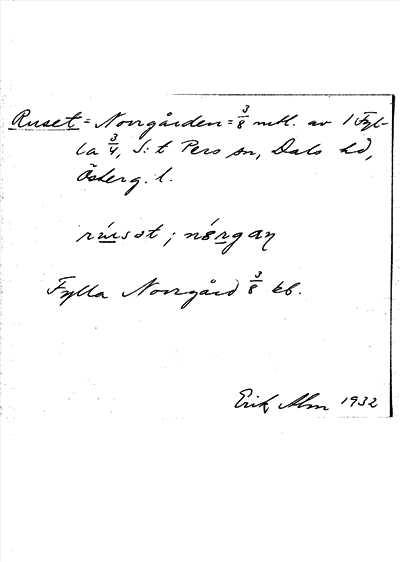 Ruset = Norrgården = 3/8 mtl. av 1 Fyl-
la 3/4, S:t Pers sn, Dals hd,
Österg. l.
rúsat; nórgaŋ
Fylla Norrgård 3/8 kb.
Erik Alm 1932